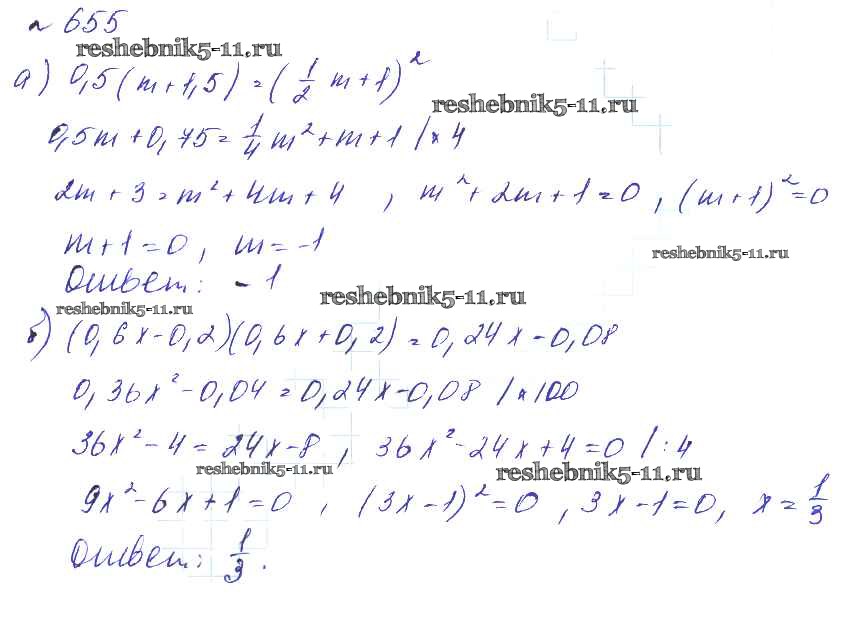 № 655
reshebnik5-11.ru
а) 0,5(m+1,5)=(1/2 m+1)²
reshebnik5-11.ru
0,5m+0,75=1/4 m²+m+1 /×4
2m+3=m²+4m+4 , m²+2m+1=0 , (m+1)²=0
m+1=0 , m=-1
reshebnik5-11.ru
Ответ: -1
reshebnik5-11.ru
reshebnik5-11.ru
б) (0,6x-0,2)(0,6x+0,2)=0,24x-0,08
0,36x²-0,04=0,24x-0,08 /×100
36x²-4=24x-8 , 36x²-24x+4=0 /:4
reshebnik5-11.ru
reshebnik5-11.ru
9x²-6x+1=0 , (3x-1)²=0 , 3x-1=0, x=1/3
Ответ: 1/3.